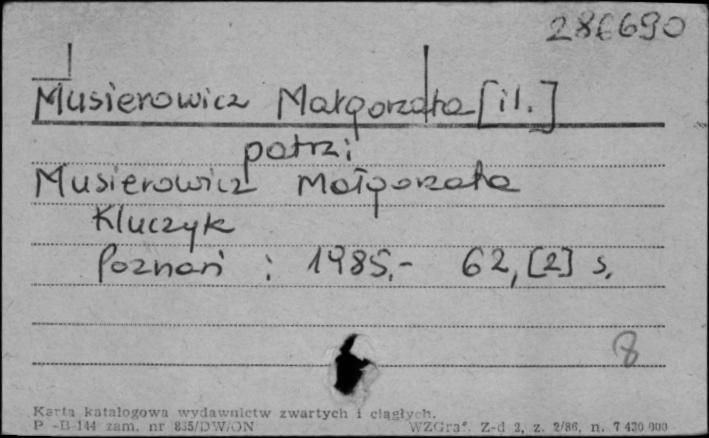 286690
Musierowicz Małgorzata [il.]
patrz:
Musierowicz Małgorzata
Kluczyk
Poznań : 1985.- 62, [2] s.
8
Karta katalogowa wydawnictw zwartych i ciągłych.
P -B-144 zam. nr 835/DW/ON WZGraf. Z-d 2, z. 2/86, n. 7 430 000